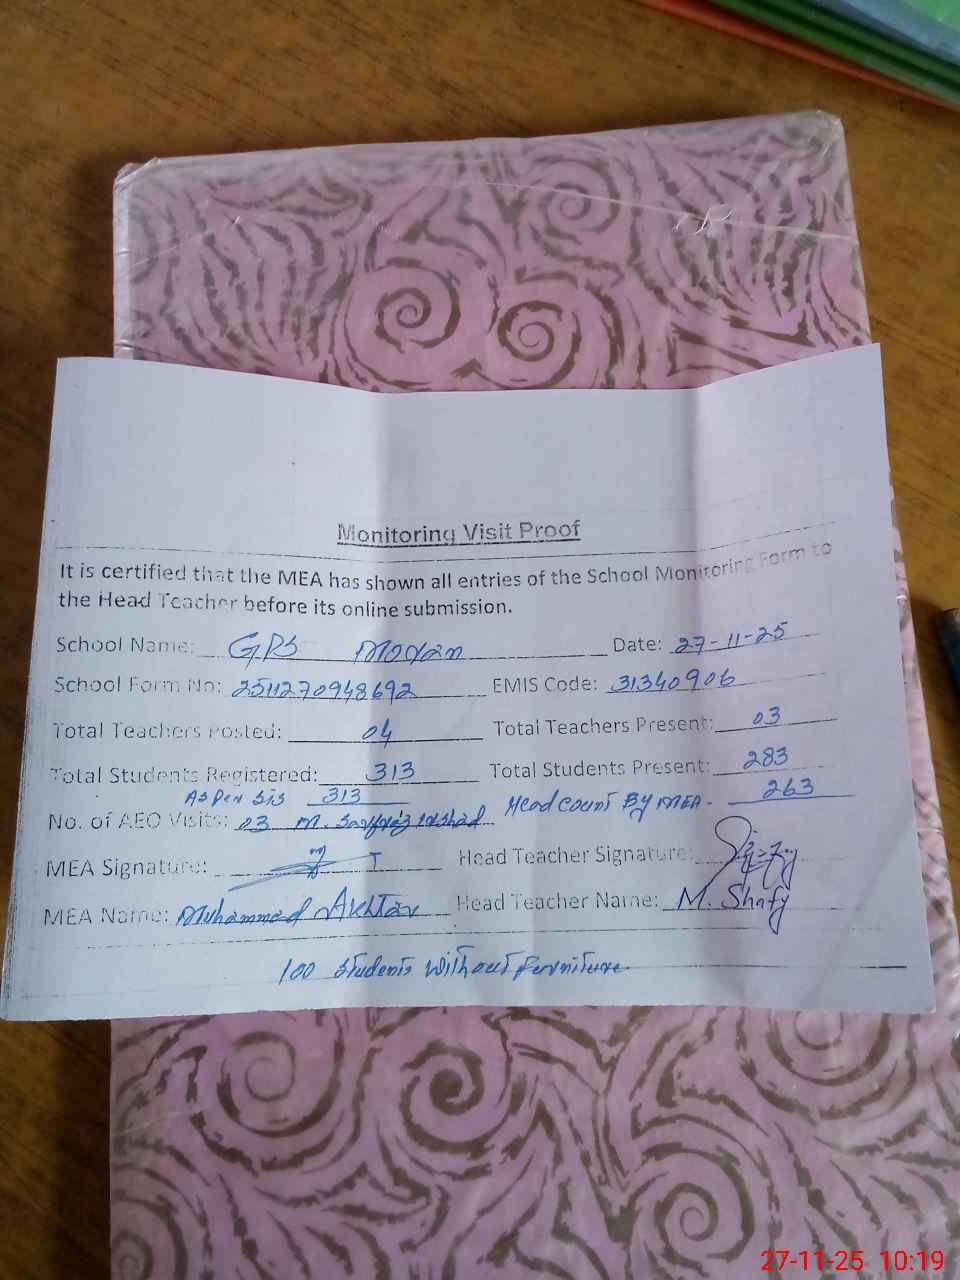 Monitoring Visit Proof
It is certified that the MEA has shown all entries of the School Monitoring Form to
the Head Teacher before its online submission.
School Name: GPS Modan Date: 27-11-25
School Form No: 2511270948692 EMIS Code: 31340906
Total Teachers Posted: 04 Total Teachers Present: 03
Total Students Registered: 313 Total Students Present: 283
As per SIS 313 Head count By MEA - 263
No. of AEO Visits: 03 M. Sarfraz Irshad
MEA Signature: Head Teacher Signature:
MEA Name: Muhammad Akhtar Head Teacher Name: M. Shafy
100 students without furniture
27-11-25 10:19